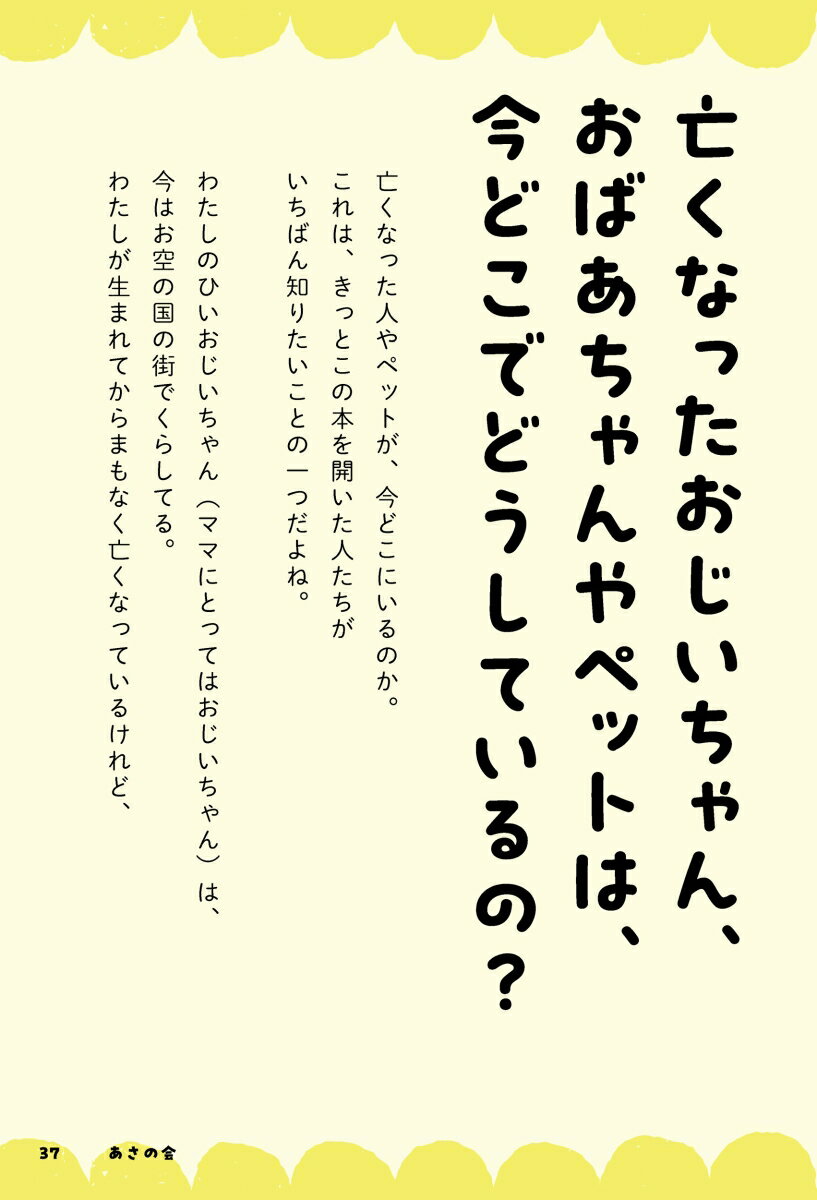 亡くなったおじいちゃん、
おばあちゃんやペットは、
今どこでどうしているの？
亡くなった人やペットが、今どこにいるのか。
これは、きっとこの本を開いた人たちが
いちばん知りたいことの一つだよね。
わたしのひいおじいちゃん（ママにとってはおじいちゃん）は、
今はお空の国の街でくらしてる。
わたしが生まれてからまもなく亡くなっているけれど、
37 あさの会